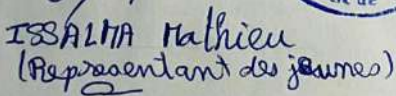 ISSALMA Mathieu
(Représentant des jeunes)